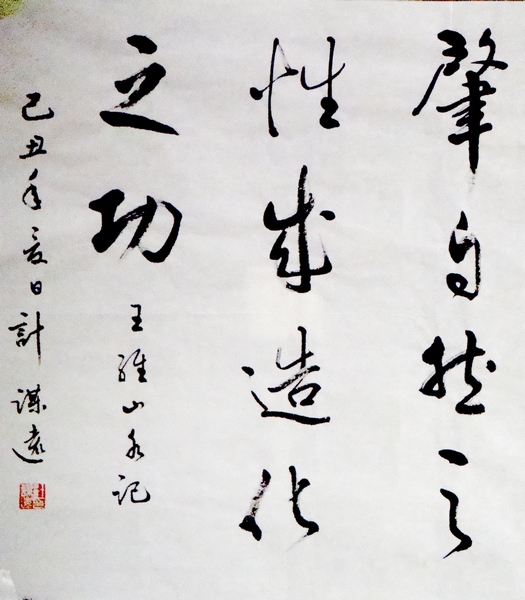 肇自然之
性成造化
之功
王維山水記
己丑年夏日計遠